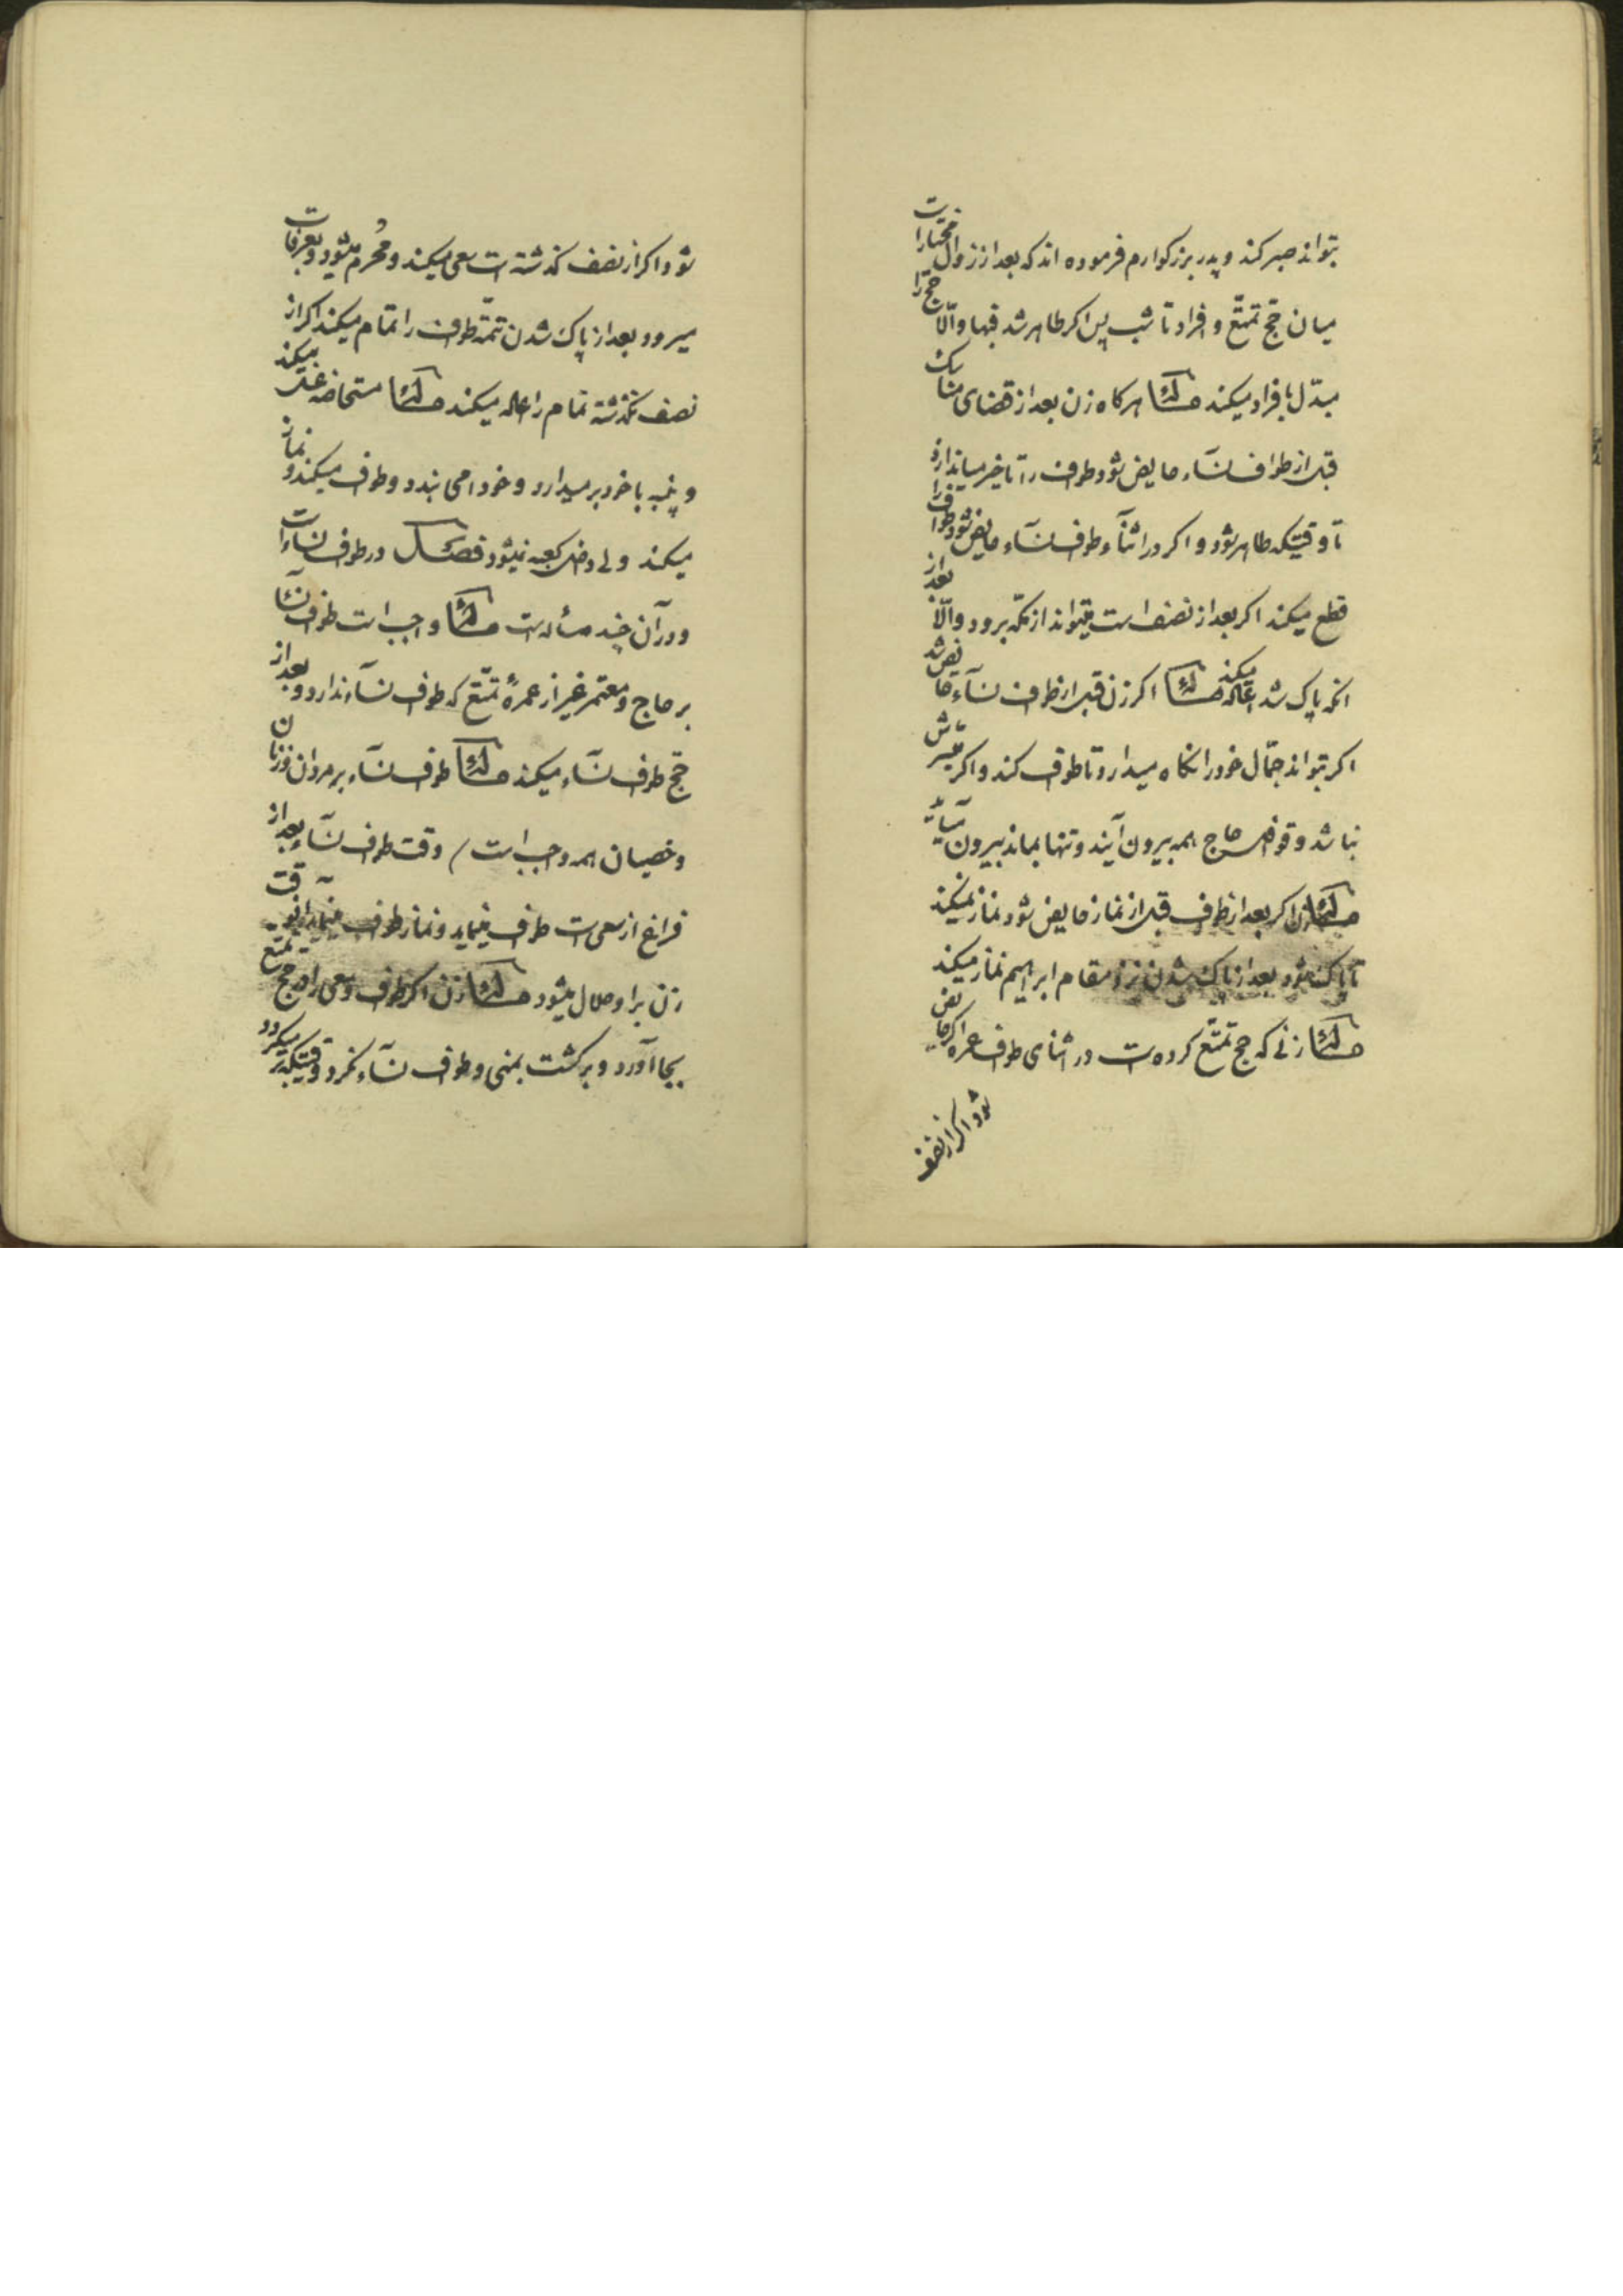 بتواند صبر کند و پدر بزرگوارم فرموده اند که بعد از زوال مختار است
میان حجّ تمتّع و افراد تا شب پس اگر طاهر شد فبها و الّا حجّ را
مبدّل بافراد میکند مسئله هرگاه زن بعد از قضای مناسک
قبل از طواف نسآء حایض شود طواف را تاخیر میاندازد
تا وقتیکه طاهر شود و اگر در اثنآء طواف نسآء حایض شود طواف را
قطع میکند اگر بعد از نصف است میتواند از مکّه برود و الّا بعد از
انکه پاک شد اعاده میکند مسئله اگر زن قبل از طواف نسآء حایض شد
اگر بتواند جمّال خود را نگاه میدارد تا طواف کند و اگر میسّرش
نباشد و قوافل حاج همه بیرون آیند و تنها بماند بیرون میآید
مسئله زن اگر بعد از طواف قبل از نماز حایض شود نماز نمیکند
تا پاک شود بعد از پاک شدن نزد مقام ابراهیم نماز میکند
مسئله زنی که حج تمتّع کرده است در اثنای طواف عمره اگر حایض
شود اگر از نصف
شود اگر از نصف گذشته است سعی میکند و مُحرم میشود و بعرفات
میرود و بعد از پاک شدن تتمّه طواف را تمام میکند اگر از
نصف نگذشته تمام را اعاده میکند مسئله مستحاضه غسل میکند
و پنبه با خود برمیدارد و خود را می بندد و طواف میکند و نماز
میکند ولی داخل کعبه نمیشود فصل در طواف نسآء است
و در آن چند مسأله است مسئله واجب است طواف نسآء
بر حاج و معتمر غیر از عمرهٔ تمتّع که طواف نسآء ندارد و بعد از
حجّ طواف نسآء میکند مسئله طواف نسآء بر مردان و زنان
و خصیان همه واجب است / وقت طواف نسآء بعد از
فراغ از سعی است طواف مینماید و نماز طواف مینماید آنوقت
زن براو حلال میشود مسئله زن اگر طواف و سعی را در حج تمتّع
بجا آورد و برگشت بمنی و طواف نسآء نکرد وقتیکه بر میگردد